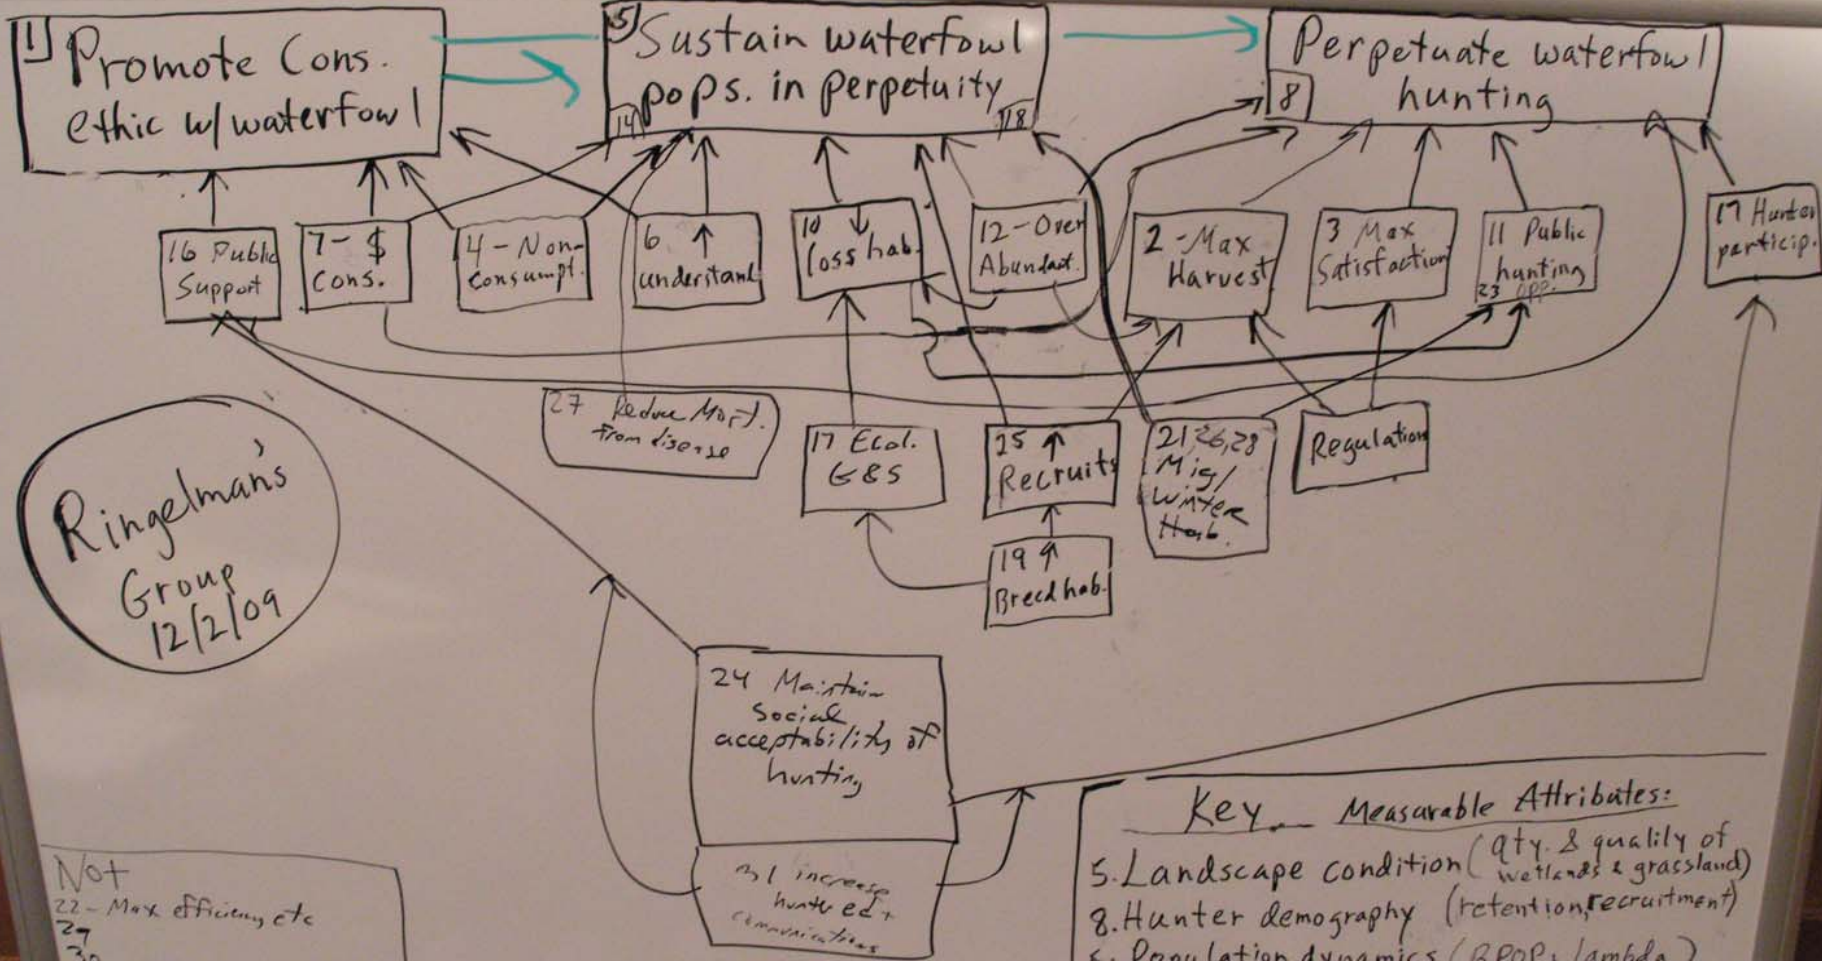 1
Promote Cons.
ethic w/waterfowl
5
Sustain waterfowl
pops. in perpetuity
14
18
Perpetuate waterfowl
8
hunting
16 Public
Support
7-$
Cons.
4-Non-
consumpt.
6 ↑
understand
10 ↓
loss hab.
12-Over
Abundact.
2-Max
Harvest
3 Max
Satisfaction
11 Public
hunting
23 opp.
17 Hunter
particip.
27 Reduce Mort.
from disease
17 Ecol.
G&S
25 ↑
Recruits
21,26,28
Mig/
Winter
Hab.
Regulation
19 ↑
Breed hab.
Ringelman's
Group
12/2/09
24 Maintain
social
acceptability of
hunting
31 increase
hunter ed +
communications
Not
22-Max efficiency etc
29
30
Key Measurable Attributes:
5. Landscape condition (qty. & quality of
wetlands & grassland)
8. Hunter demography (retention, recruitment)
Population dynamics (BPOP, lambda)